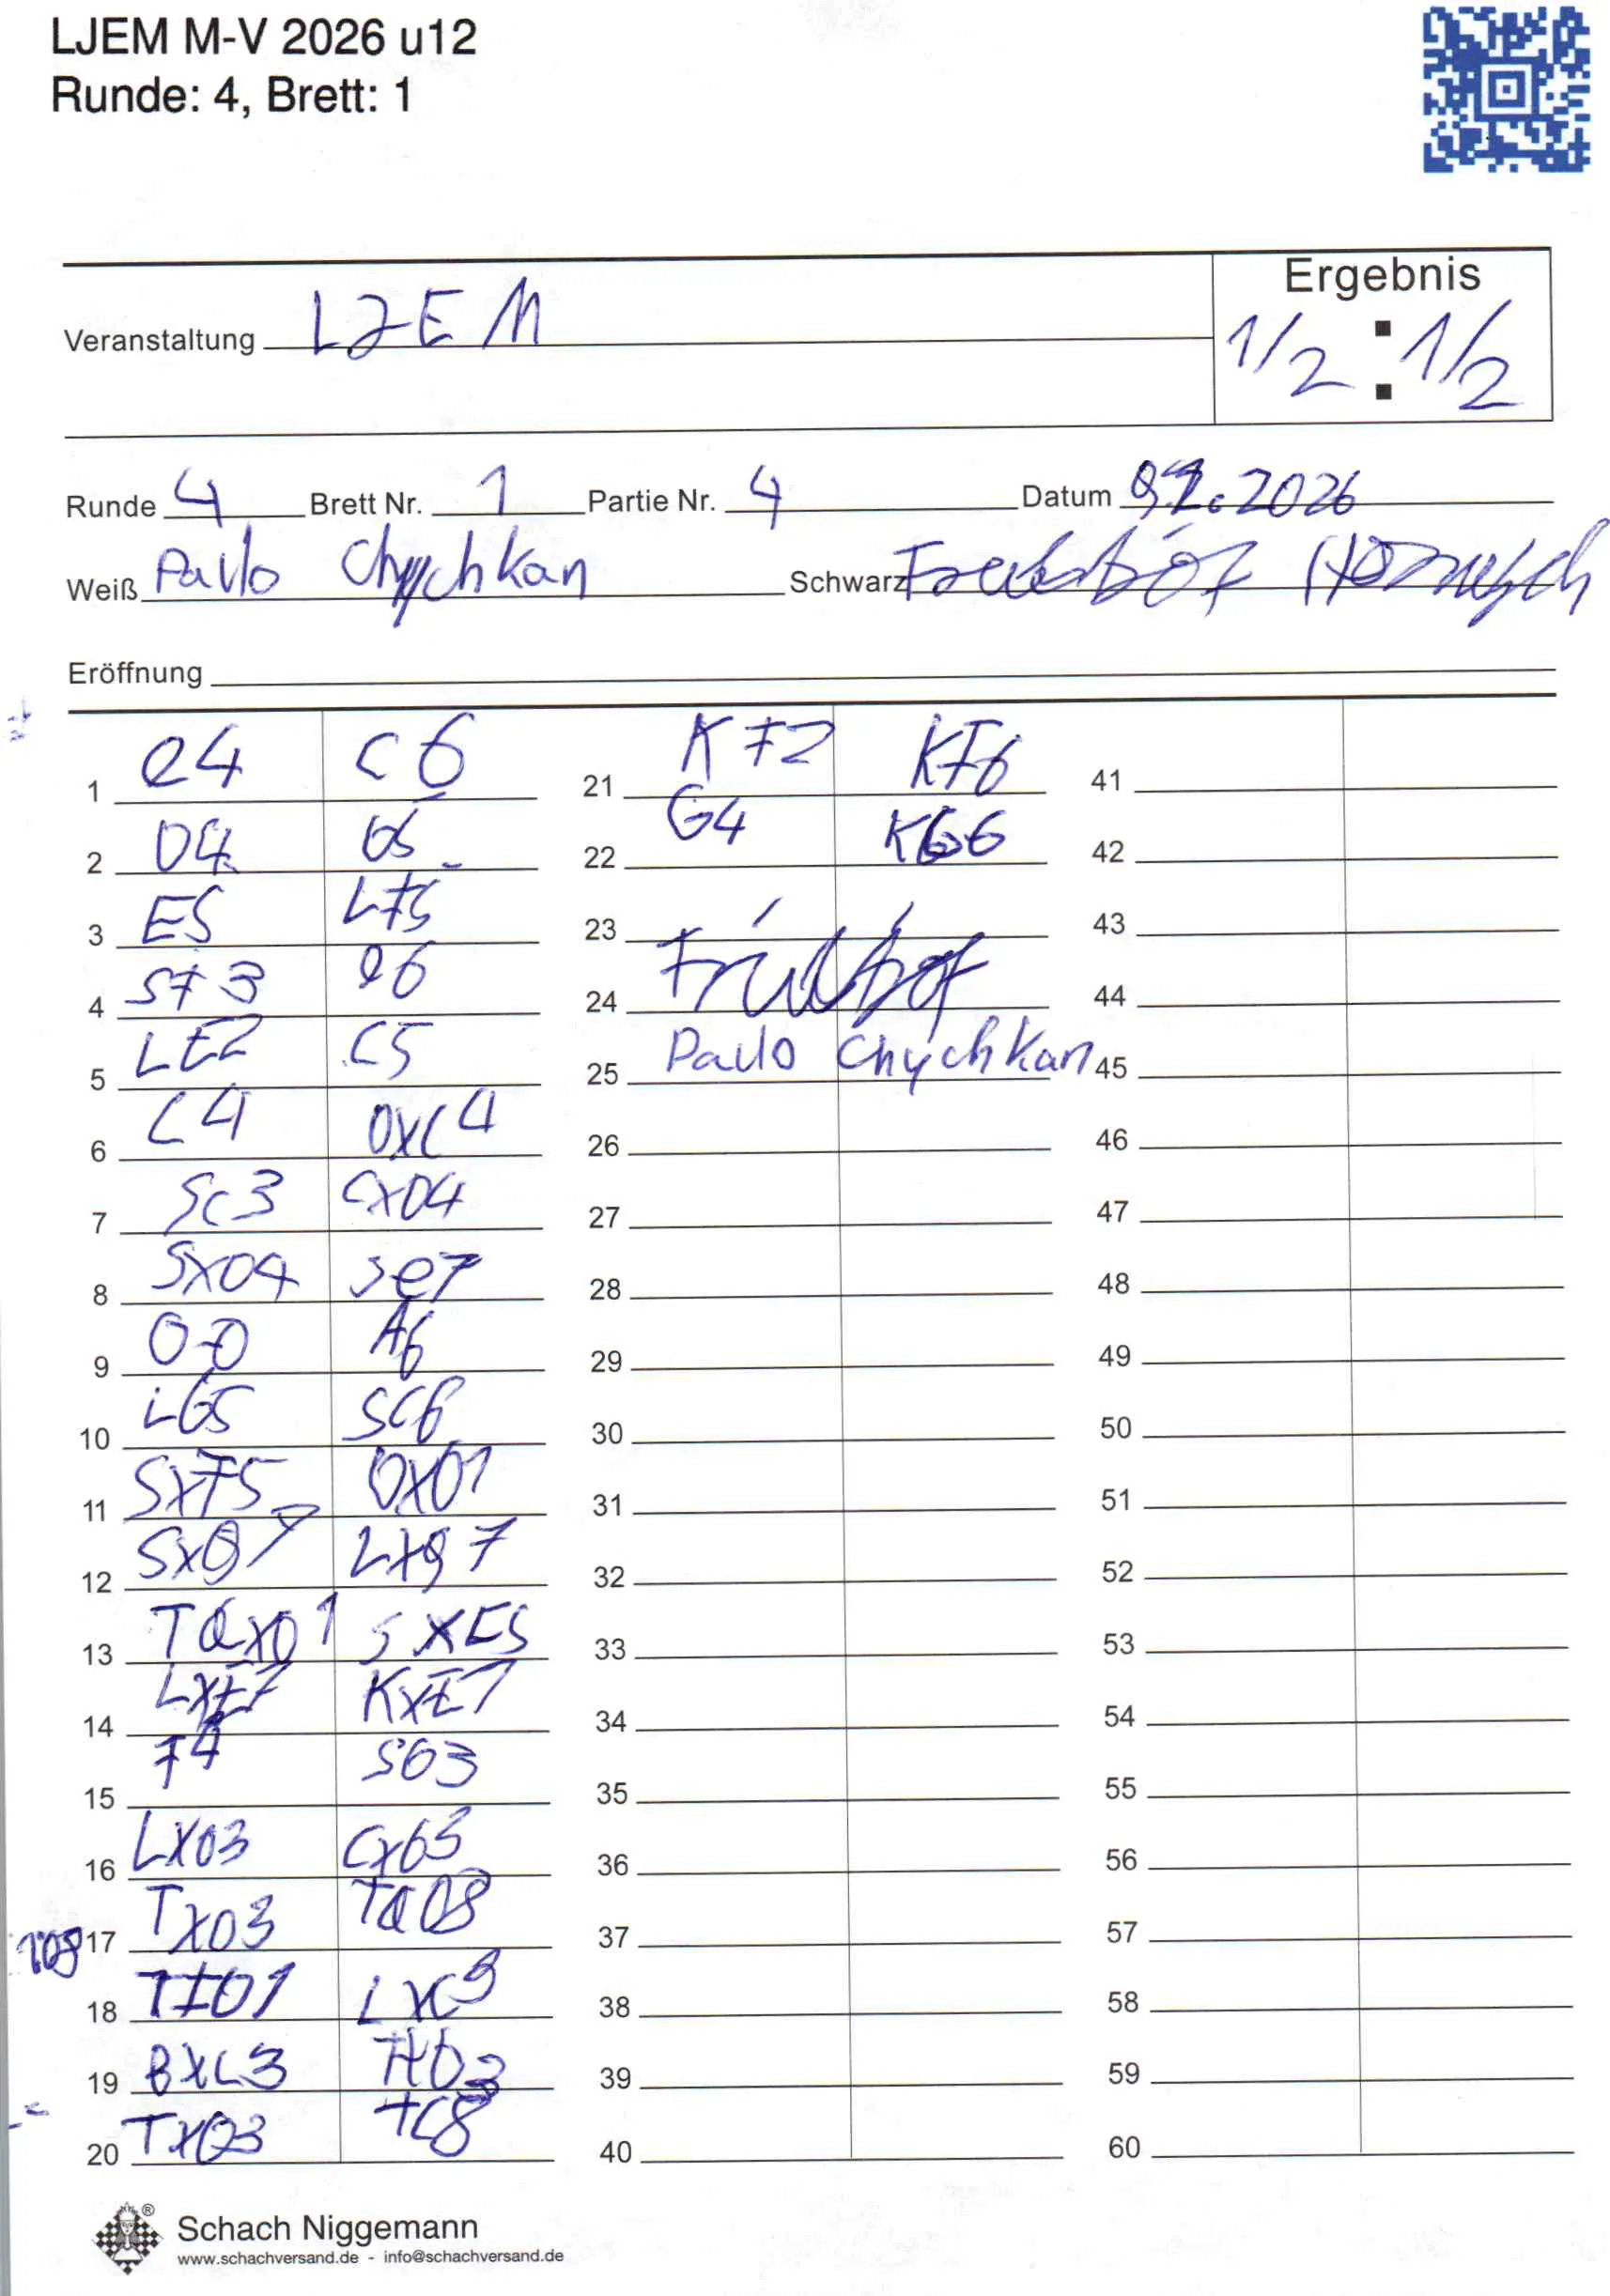 LJEM M-V 2026 u12
Runde: 4, Brett: 1
Ergebnis
Veranstaltung LJEM
1/2 : 1/2
Runde 4 Brett Nr. 1 Partie Nr. 4 Datum 2026
Weiß Pavlo Chychkan Schwarz
Eröffnung
1 e4 c6
2 D4 D5
3 E5 LF5
4 SF3 e6
5 LE2 C5
6 C4 DXC4
7 Sc3 CXD4
8 SXD4 Se7
9 0-0 A6
10 LG5 SC6
11 SXF5 DXD1
12 SXG7 LXg7
13 TaXD1 SXE5
14 LXE7 KXE7
15 F4 SD3
16 LXD3 CXD3
17 TXD3 TaD8
18 TFD1 LXC3
19 BXC3 TXD3
20 TXD3 TC8
21 KF2 KF6
22 G4 KG6
23
24
25 Pavlo Chychkan
26
27
28
29
30
31
32
33
34
35
36
37
38
39
40
41
42
43
44
45
46
47
48
49
50
51
52
53
54
55
56
57
58
59
60
TD8
Schach Niggemann
www.schachversand.de - info@schachversand.de